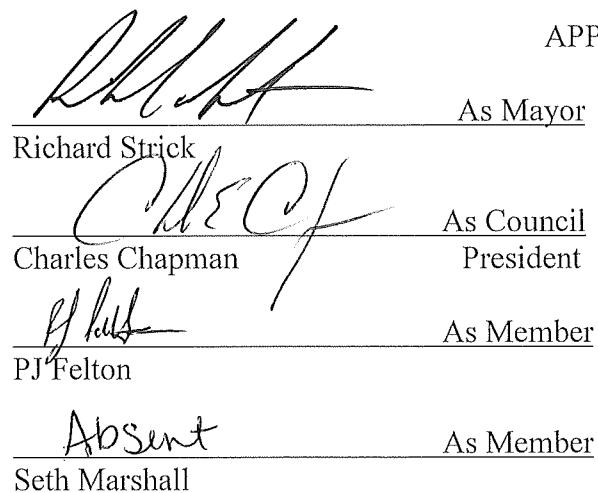 APP
As Mayor
Richard Strick
As Council
Charles Chapman President
As Member
PJ Felton
Absent As Member
Seth Marshall